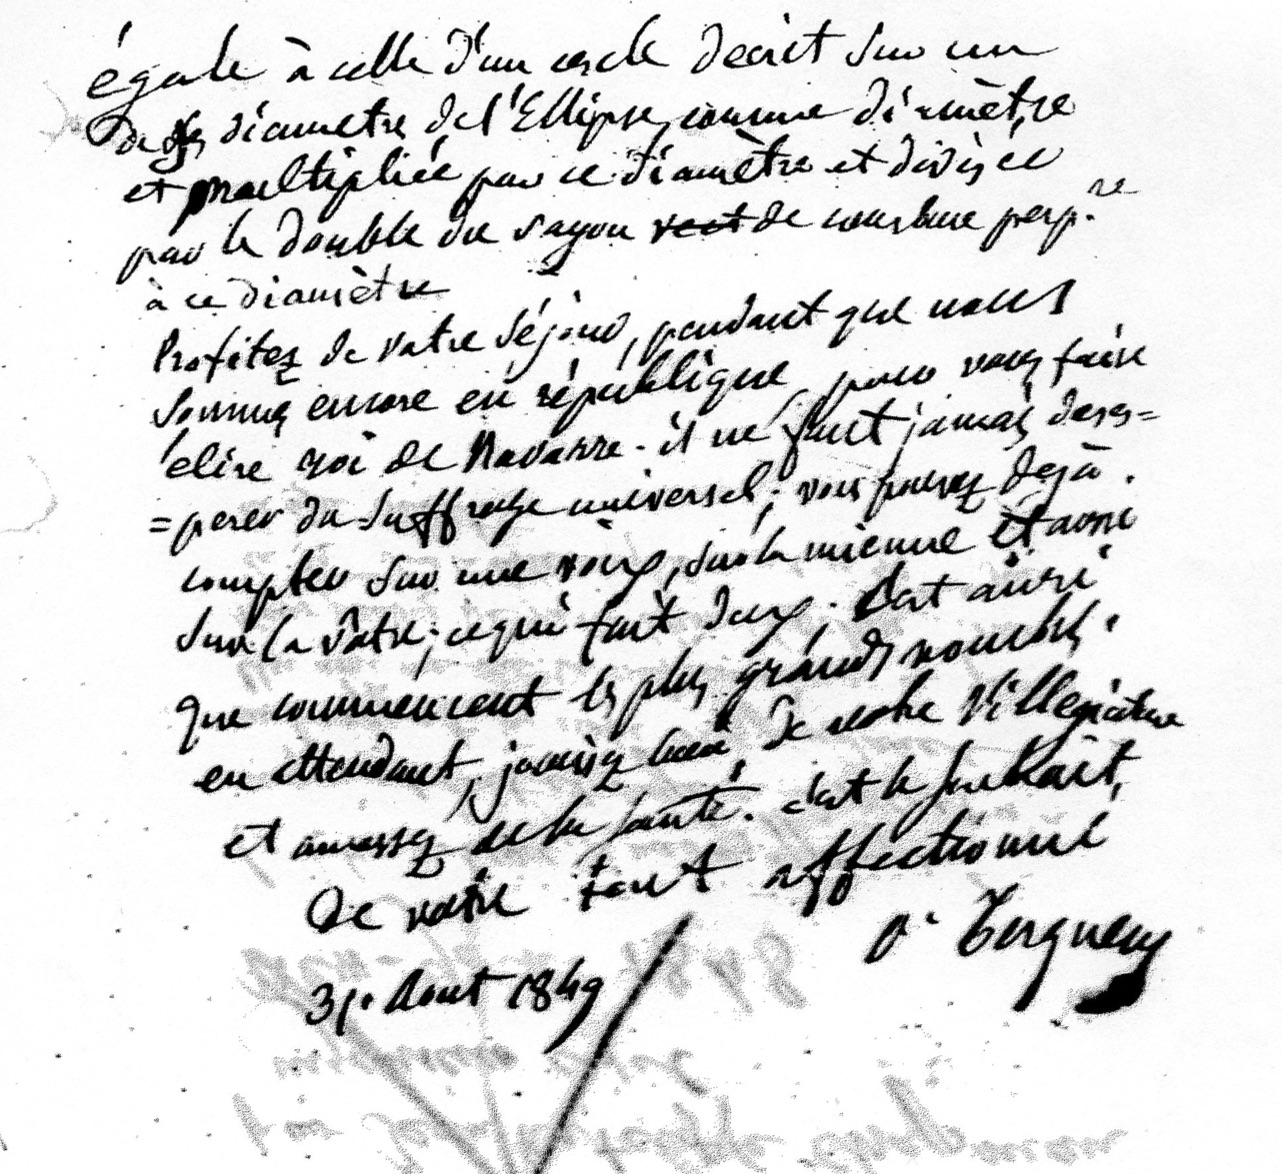 égale à celle d'un cercle decrit sur un
de ses diametres de l'Ellipse, comme diamètre
et multipliée par ce diamètre et divisée
par le double du rayon vect de courbure perp.re
à ce diamètre
Profitez de votre séjour, pendant que nous
sommes encore en république, pour vous faire
élire roi de Navarre. il ne faut jamais deses=
=perer du suffrage universel; vous pouvez dejà
compter sur une voix, sur la mienne et aussi
sur la vôtre; ce qui fait deux. C'est ainsi
que commencent les plus grands nombres.
en attendant, jouissez bien de votre Villegiature
et amassez de la santé. c'est le souhait,
De votre tout affectionné
O. Terquem
31. Aout 1849